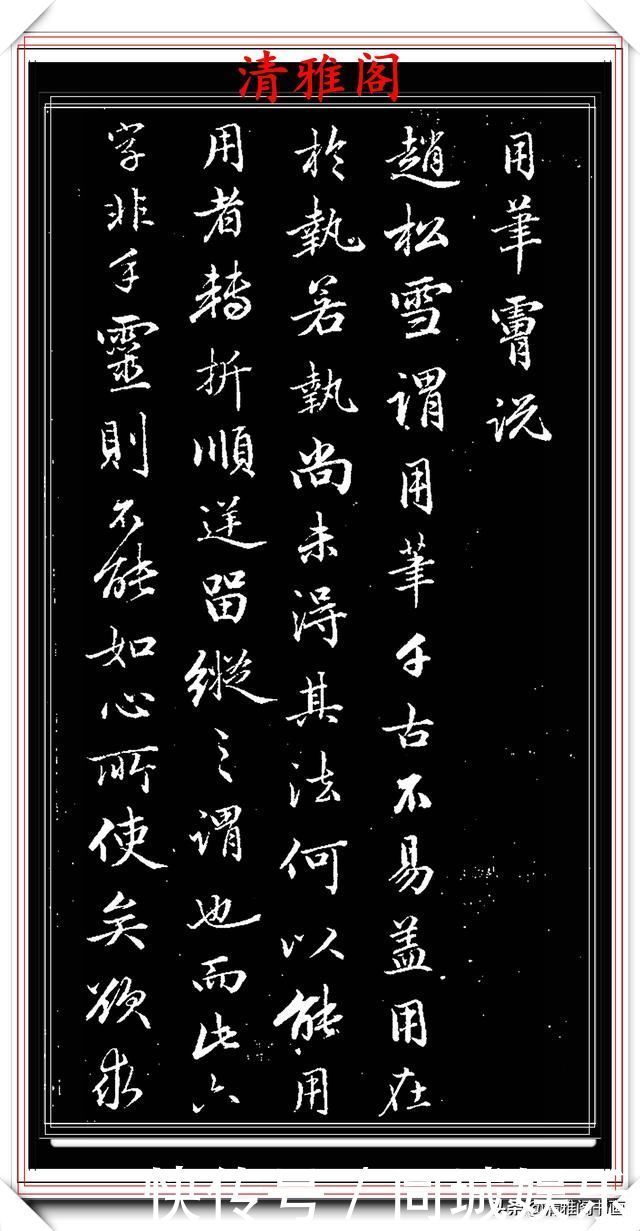 清雅阁
用筆说
趙松雪謂用筆千古不易盖用在
於執若執尚未得其法何以能用
用者轉折順逆留縱之謂也而此六
字非手靈則不能如心所使矣欲求
快传号 / 同城
头条 @清雅阁书画